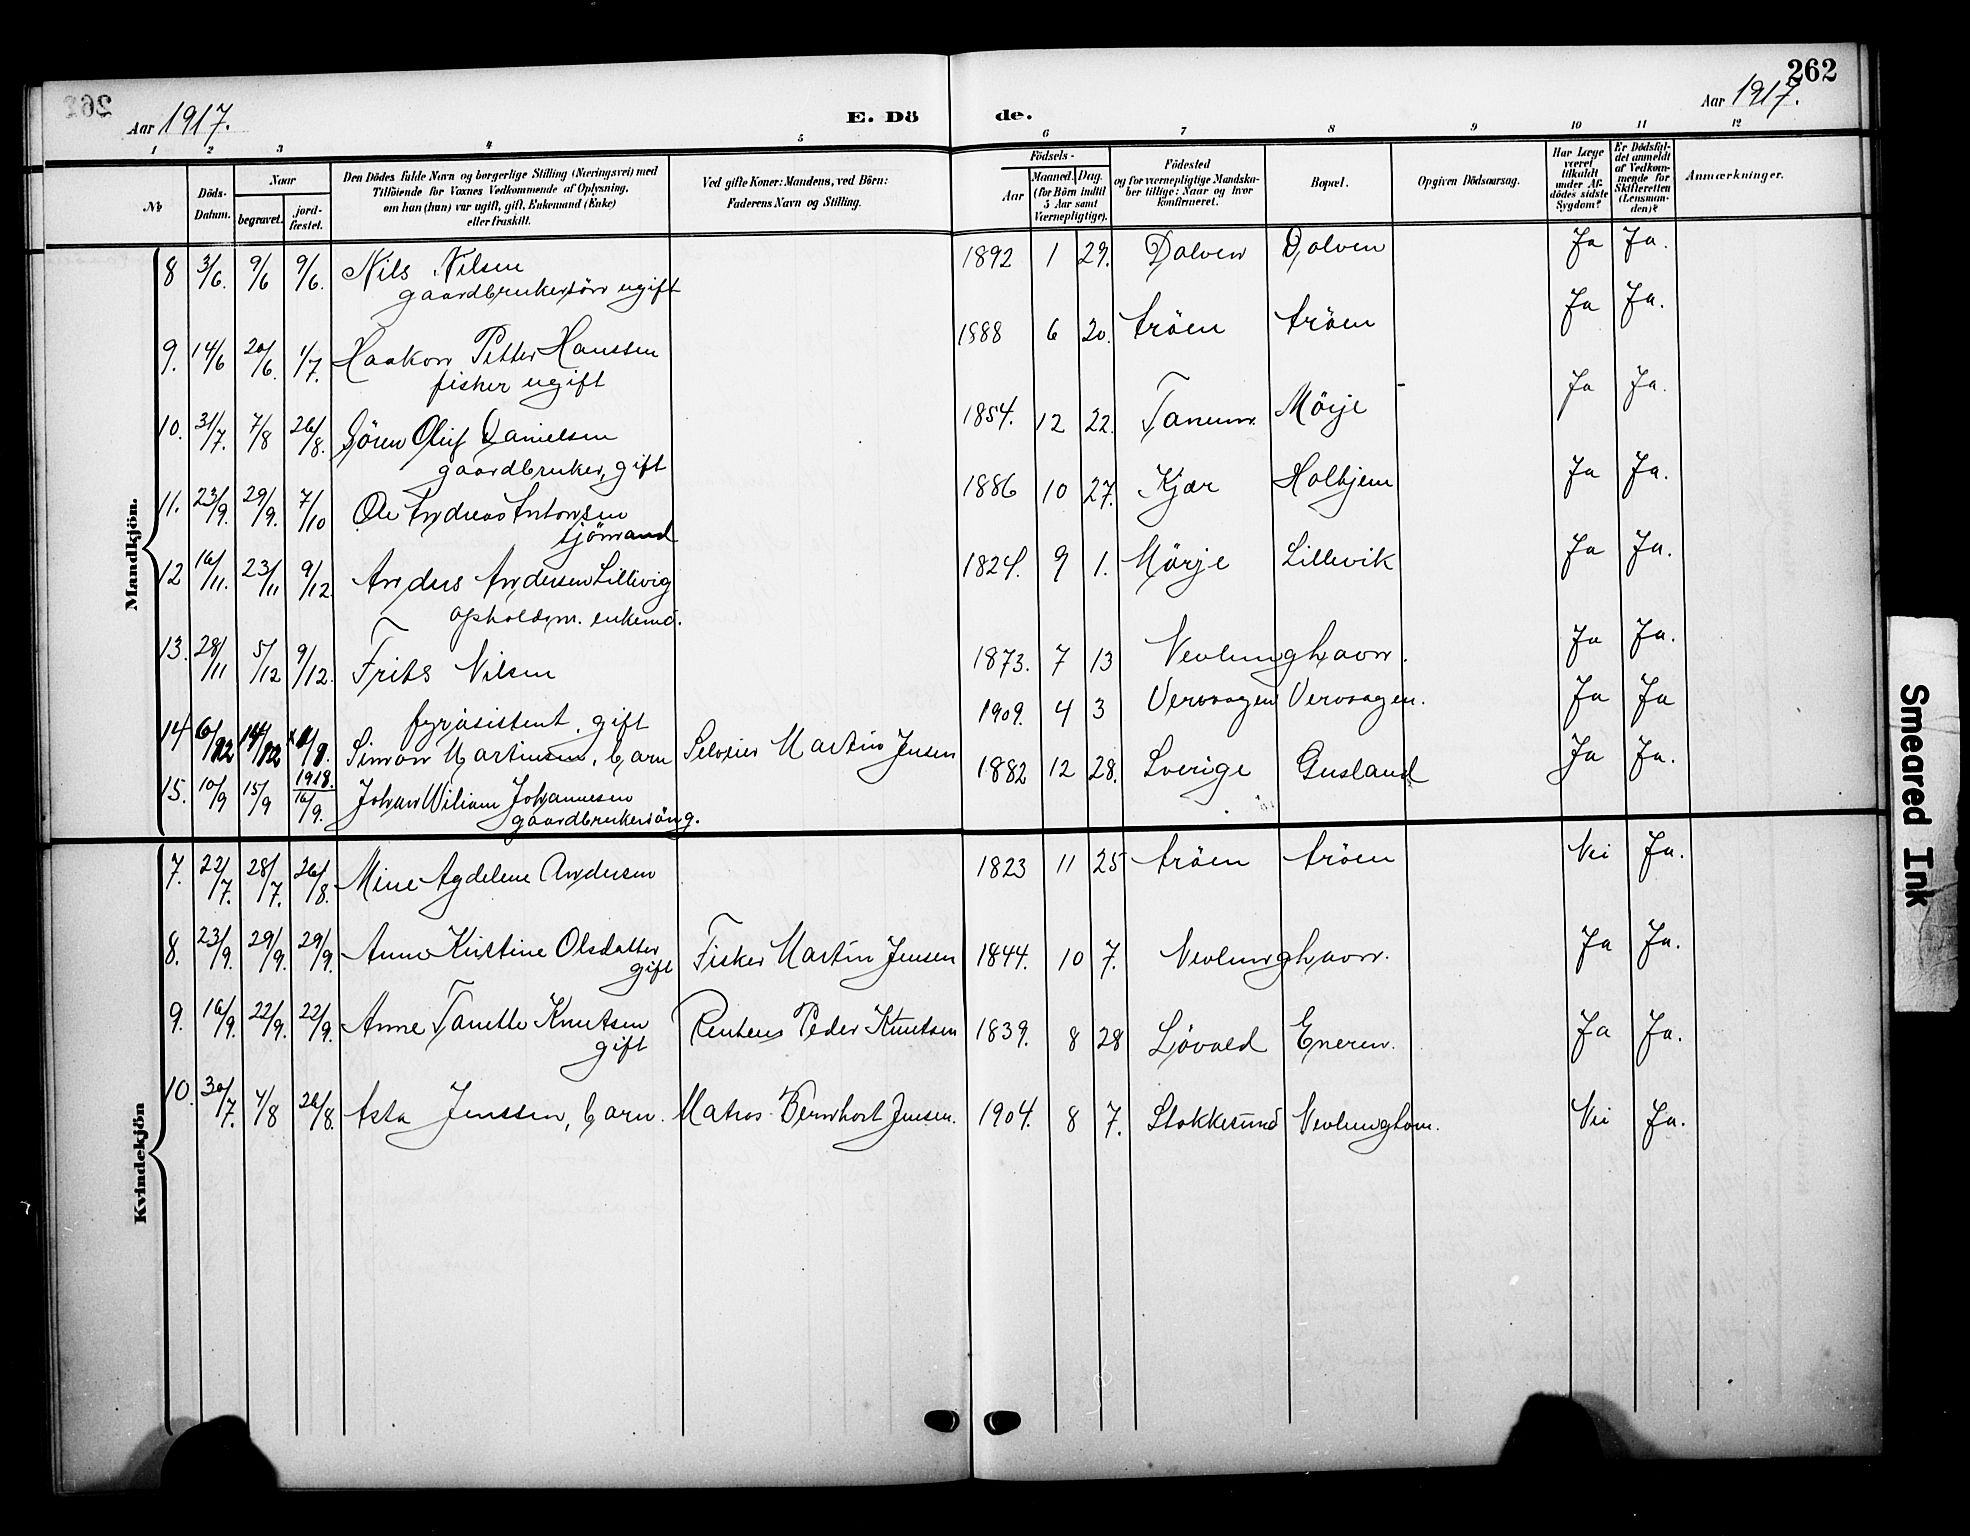 262
Aar 1917.
E. Dö de.
Aar 1917.
1 2 3 4 5 6 7 8 9 10 11 12
No
Döds-Datum.
Naar
begravet.
jordfæstet.
Den Dödes fulde Navn og borgerlige Stilling (Næringsvei) med
Tilföiende for Voxnes Vedkommende af Oplysning,
om han (hun) var ugift, gift, Enkemand (Enke)
eller fraskilt.
Ved gifte Koner: Mandens, ved Börn:
Faderens Navn og Stilling.
Födsels-
Aar
Maaned. Dag.
(for Börn indtil
5 Aar samt
Værnepligtige).
Födested
og for værnepligtige Mandskaber tillige: Naar og hvor
konfirmeret.
Bopæl.
Opgiven Dödsaarsag.
Har Læge
været
tilkaldt
under Afdödes sidste
Sygdom?
Er Dödsfaldet anmeldt
af Vedkommende for
Skifteretten
(Lensmanden)?
Anmærkninger.
Mandkjön.
8 3/6. 9/6 9/6. Nils Nilsen 1892 1 29. Dolven Dolven Ja Ja.
gaardbrukersön ugift
9. 14/6 20/6. 1/7. Haakon Petter Hanssen 1888 6 20. Aröen Aröen Ja Ja.
fisker ugift
10. 31/7. 7/8 26/8. Sören Oluf Danielsen 1854. 12 22. Tanum. Mörje Ja Ja.
gaardbruker, gift
11. 23/9. 29/9. 7/10 Ole Andreas Antonsen 1886 10 27. Kjær Holbjem Ja Ja.
sjömand
12 16/11. 23/11 9/12. Anders Andersen Lillevig 1824. 9 1. Mörje Lillevik Ja Ja.
opholdsm. enkemd.
13. 28/11 5/12 9/12. Frits Nilsen 1873. 7 13 Nevlunghavn. Ja Ja.
fyrasistent, gift
14 6/12 14/12 Simon Martinsen, barn Selveier Martin Jensen 1909. 4 3 Vervaagen Vervaagen. Ja Ja
1918.
15. 10/9 15/9 16/9. Johan Wiliam Johannesen 1882 12 28. Sverige Gusland Ja Ja.
gaardbrukersön g.
Kvindekjön
7. 22/7. 28/7. 26/8. Mine Agdelene Andersen 1823 11 25 Aröen Aröen Nei Ja.
8. 23/9. 29/9. 29/9. Anne Kirstine Olsdatter Fisker Martin Jensen 1844. 10 7. Nevlunghavn. Ja Ja.
gift
9. 16/9. 22/9. 22/9. Anne Tanette Knutsen Rentens Peder Knutsen 1839. 8 28 Løvald Eneren. Ja Ja.
gift
10. 30/7. 4/8 26/8. Asta Jenssen, barn. Matros Bernhart Jensen. 1904. 8 7. Stokkesund Nevlunghavn. Nei Ja.
Smeared Ink